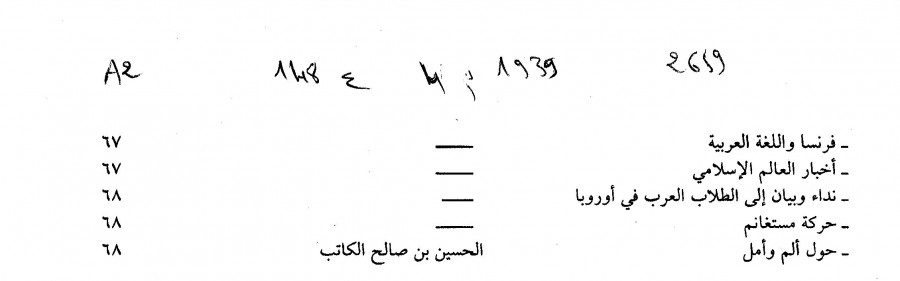 2619 1939 ع 148 A2
- فرنسا واللغة العربية ___ ٦٧
- أخبار العالم الإسلامي ___ ٦٧
- نداء وبيان إلى الطلاب العرب في أوروبا ___ ٦٨
- حركة مستغانم ___ ٦٨
- حول ألم وأمل الحسين بن صالح الكاتب ٦٨